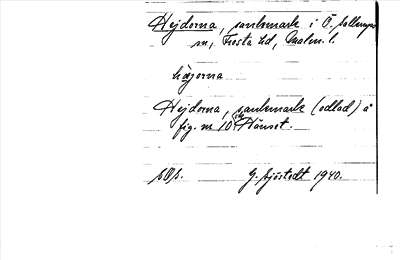 Hejdorna, sankmark i Ö. Sallerups
sn, Frosta hd, Malm. l.
häjorna
Hejdorna, sankmark (odlad) å
fig. nr 10 Hänset.
G. Sjöstedt 1940.